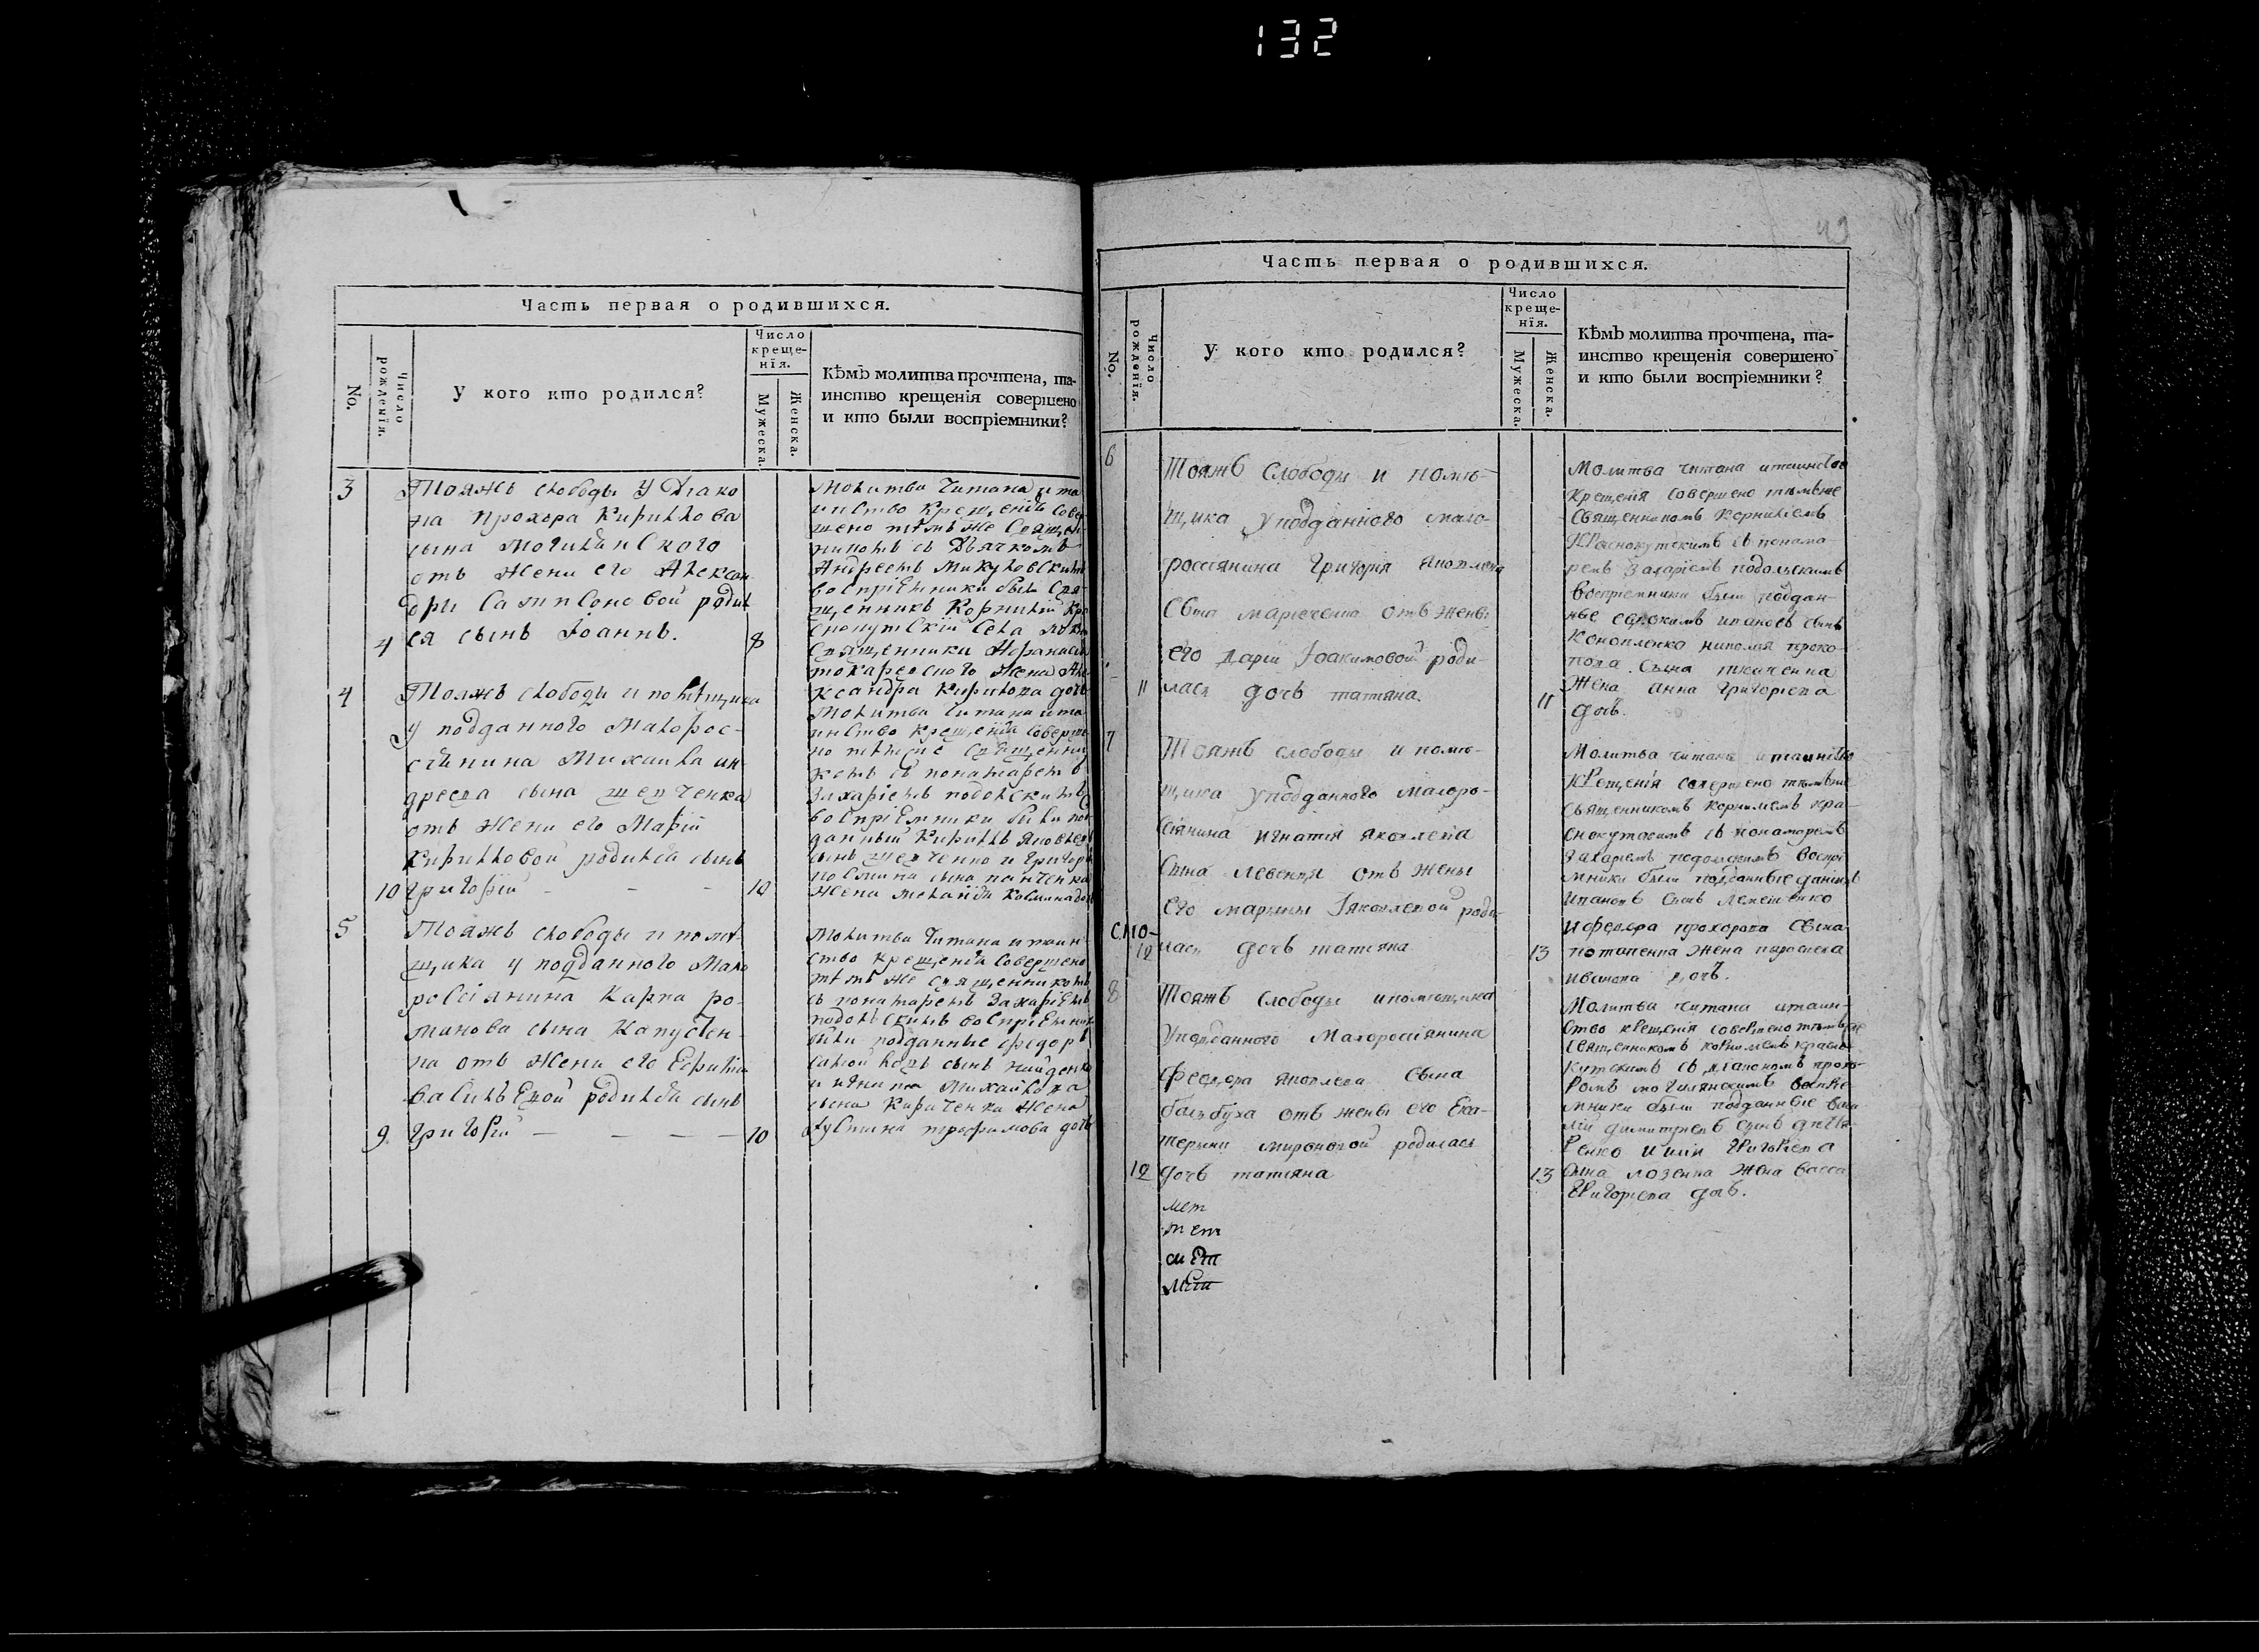 132
Часть первая о родившихся.
No.
Число рожденїя.
У кого кто родился?
Число креще-
нїя.
Мужеска.
Женска.
Кѣмъ молитва прочтена, та-
инство крещенія совершено
и кто были воспріемники?
3
Тояжъ слободы У Диако
на Прохора Кирилова
сына Могилянского
отъ Жени его Алексан
дри Сампсоновой родил
4 ся сынъ Іоаннъ. 8
Молитва Читана и та
инство Крещенїя Совер
шено тѣмъ же Священ
никомъ съ Дьячкомъ
Андреемъ
воспрїемники были Свя
щенникъ Корнилїй Кра
снокутскїй Села
Священника Афанасия
Жена Але
ксандра Кирилова дочь
4
Тояжъ слободы и помѣщика
у подданного Малорос-
сїянина Михаила ан
дреева сына шевченка
отъ Жени его Марїи
Кириловой родился сынъ
10 григорїй - - - 10
Молитва Читана и та
инство крещенїя соверше
но тѣмже Священни
комъ съ понамаремъ
Захарїемъ подольскимъ
воспрїемники были под
данный Кирилъ Яковлевъ
сынъ шевченко и григорїя
сына панченка
Жена Меланїя
5
Тояжъ слободы и помѣ-
щика у подданного Мало
россїянина Карпа ро-
манова сына Капустен-
ка отъ Жени его Евфимїи
васильевой родился сынъ
9 григорїй — — — — 10
Молитва Читана и таин
ство крещенїя Совершено
тѣмъ же священникомъ
съ понамаремъ Захарїемъ
подольскимъ воспрїемники
были подданные федоръ
сынъ найденко
и Михайлова
сына Кириченка Жена
Іустина трофимова дочь
49
Часть первая о родившихся.
No.
Число рожденїя.
У кого кто родился?
Число
креще-
нїя.
Мужеска.
Женска.
Кѣмъ молитва прочтена, та-
инство крещенія совершено
и кто были воспріемники?
6
Тояжъ Слободы и помѣ-
щика у подданного мало-
россїянина Григорїя Яковлева
Сына отъ жены
его Дарїи Іоакимовой роди-
11 лася дочъ татяна. 11
Молитва читана и таинство
крещенїя совершено тѣмъже
Священникомъ Корнилїемъ
Краснокутскимъ съ понама-
ремъ Захарїемъ подольскимъ
воспрїемники были поддан-
ные ивановъ сынъ
Конопленко
сына ткаченка
Жена анна григорїева
дочь.
7
Тояжъ слободы и помѣ-
щика у подданного Малоро-
сїянина игнатїя яковлева
Сына Левенця отъ жены
его марины Іяковлевой роди-
СМО-
12 лася дочъ татяна 13
Молитва читана и таинство
крещенїя совершено тѣмъже
священникомъ корнилїемъ кра-
снокутскимъ съ понамаремъ
захарїемъ подольскимъ воспрї
мники были подданные данїилъ
ивановъ Сынъ
и федора прохорова Сына
потапенка жена параскева
иванова дочъ.
8
Тояжъ Слободы и помѣщика
У подданного Малороссїянина
феодора яковлева Сына
балъбуха отъ жены его Ека-
терины мироновой родилася
12 дочъ татияна 13
Молитва читана итаин-
ство крещенїя совершено тѣмъже
священникомъ корнилемъ красно
кутскимъ съ дїакономъ прохо-
ромъ могилянскимъ воспрїе
мники были подданные васи
лїй димитрїевъ Сынъ
Григорїева
сына лозенка жена васса
григорїева дочь.
мет